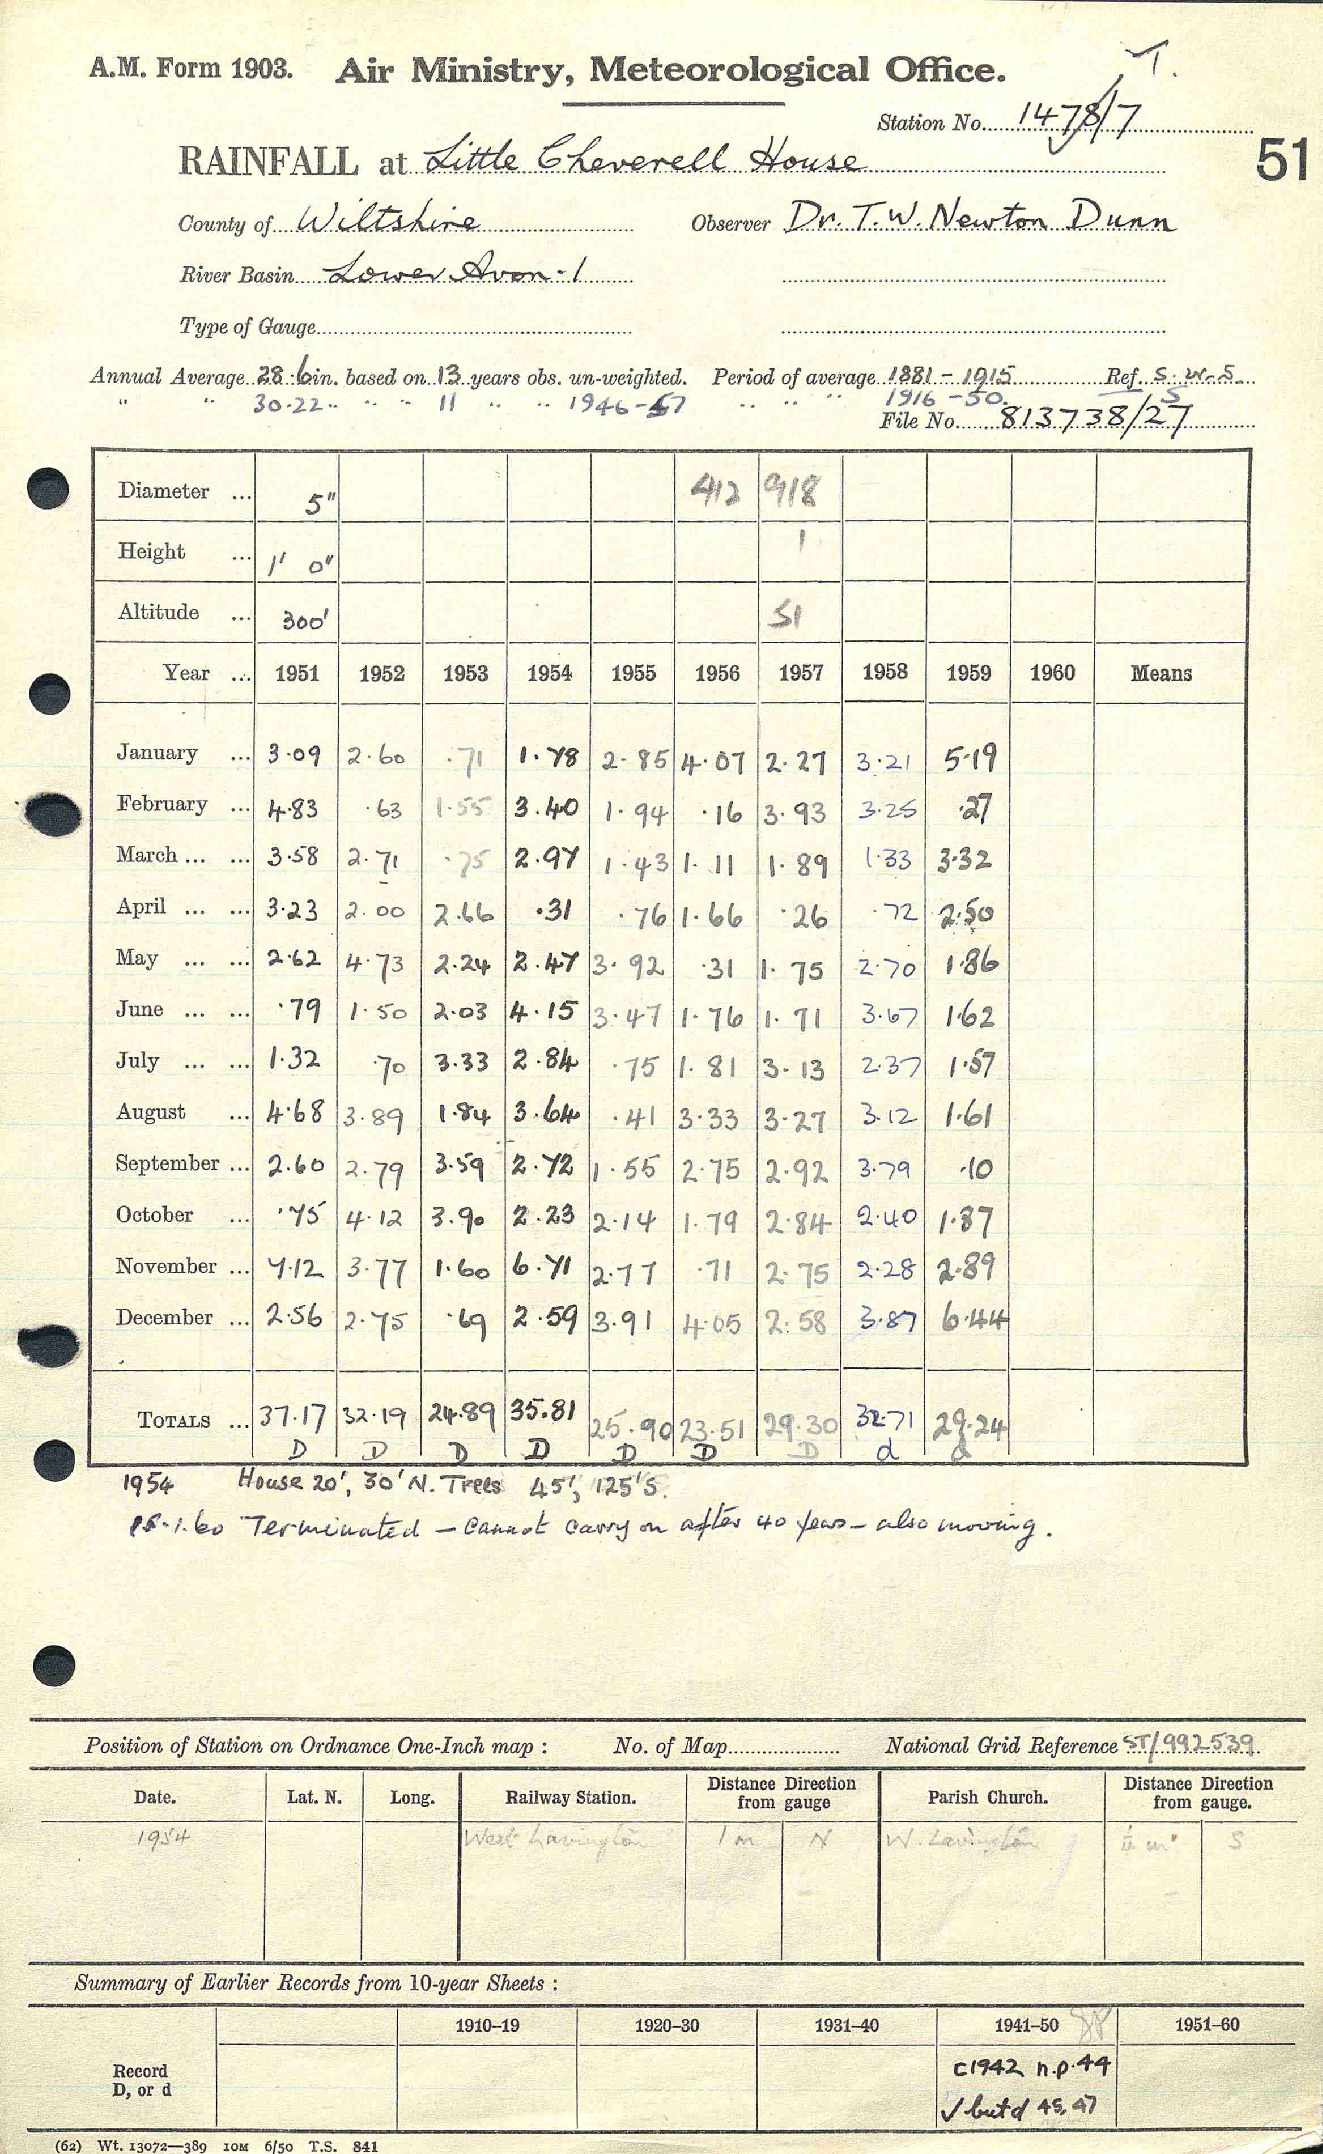 T.
A.M. Form 1903. Air Ministry, Meteorological Office.
Station No. 1478/7
51
RAINFALL at Little Cheverell House
County of Wiltshire Observer Dr. T. W. Newton Dunn
River Basin Lower Avon - 1
Type of Gauge
Annual Average 28.6 in. based on 13 years obs. un-weighted. Period of average 1881 - 1915 Ref. S.W.S.
" " 30.22 " " " 11 " " 1946-57 " " " 1916 - 50. S
File No. 813738/27
Diameter ... 5" 412 918
Height ... 1' 0" 1
Altitude ... 300' 51
Year ... 1951 1952 1953 1954 1955 1956 1957 1958 1959 1960 Means
January ... 3.09 2.60 .71 1.78 2.85 4.07 2.27 3.21 5.19
February ... 4.83 .63 1.55 3.40 1.94 .16 3.93 3.25 .27
March ... ... 3.58 2.71 .75 2.97 1.43 1.11 1.89 1.33 3.32
April ... ... 3.23 2.00 2.66 .31 .76 1.66 .26 .72 2.50
May ... ... 2.62 4.73 2.24 2.47 3.92 .31 1.75 2.70 1.86
June ... ... .79 1.50 2.03 4.15 3.47 1.76 1.71 3.67 1.62
July ... ... 1.32 .70 3.33 2.84 .75 1.81 3.13 2.37 1.57
August ... 4.68 3.89 1.84 3.64 .41 3.33 3.27 3.12 1.61
September ... 2.60 2.79 3.59 2.72 1.55 2.75 2.92 3.79 .10
October ... .75 4.12 3.90 2.23 2.14 1.79 2.84 2.40 1.87
November ... 7.12 3.77 1.60 6.71 2.77 .71 2.75 2.28 2.89
December ... 2.56 2.75 .69 2.59 3.91 4.05 2.58 3.87 6.44
TOTALS ... 37.17 32.19 24.89 35.81 25.90 23.51 29.30 32.71 29.24
D D D D D D D d d
1954 House 20', 30' N. Trees 45', 125' S.
15.1.60 Terminated - cannot carry on after 40 years - also moving.
Position of Station on Ordnance One-Inch map : No. of Map National Grid Reference ST/992539
Date. Lat. N. Long. Railway Station. Distance Direction from gauge Parish Church. Distance Direction from gauge.
1954 West Lavington 1 m N W. Lavington m S
Summary of Earlier Records from 10-year Sheets :
1910–19 1920–30 1931–40 1941–50 1951–60
Record D, or d
c1942 n.p. 44
✓ but d 45, 47
(62) Wt. 13072—389 10M 6/50 T.S. 841